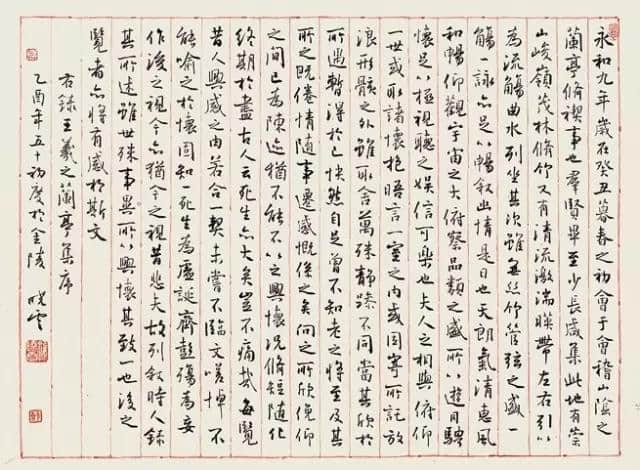 永和九年歲在癸丑暮春之初會于會稽山陰之
蘭亭脩禊事也羣賢畢至少長咸集此地有崇
山峻嶺茂林脩竹又有清流激湍暎帶左右引以
為流觴曲水列坐其次雖無絲竹管弦之盛一
觴一詠亦足以暢敘幽情是日也天朗氣清惠風
和暢仰觀宇宙之大俯察品類之盛所以遊目騁
懷足以極視聽之娛信可樂也夫人之相與俯仰
一世或取諸懷抱晤言一室之內或因寄所託放
浪形骸之外雖取舍萬殊靜躁不同當其欣於
所遇暫得於己快然自足曾不知老之將至及其
所之既倦情隨事遷感慨係之矣向之所欣俛仰
之間已為陳迹猶不能不以之興懷況脩短隨化
終期於盡古人云死生亦大矣豈不痛哉每覽
昔人興感之由若合一契未嘗不臨文嗟悼不
能喻之於懷固知一死生為虛誕齊彭殤為妄
作後之視今亦猶今之視昔悲夫故列敘時人錄
其所述雖世殊事異所以興懷其致一也後之
覽者亦將有感於斯文
右錄王羲之蘭亭集序
乙酉年五十初度於金陵 曉雲